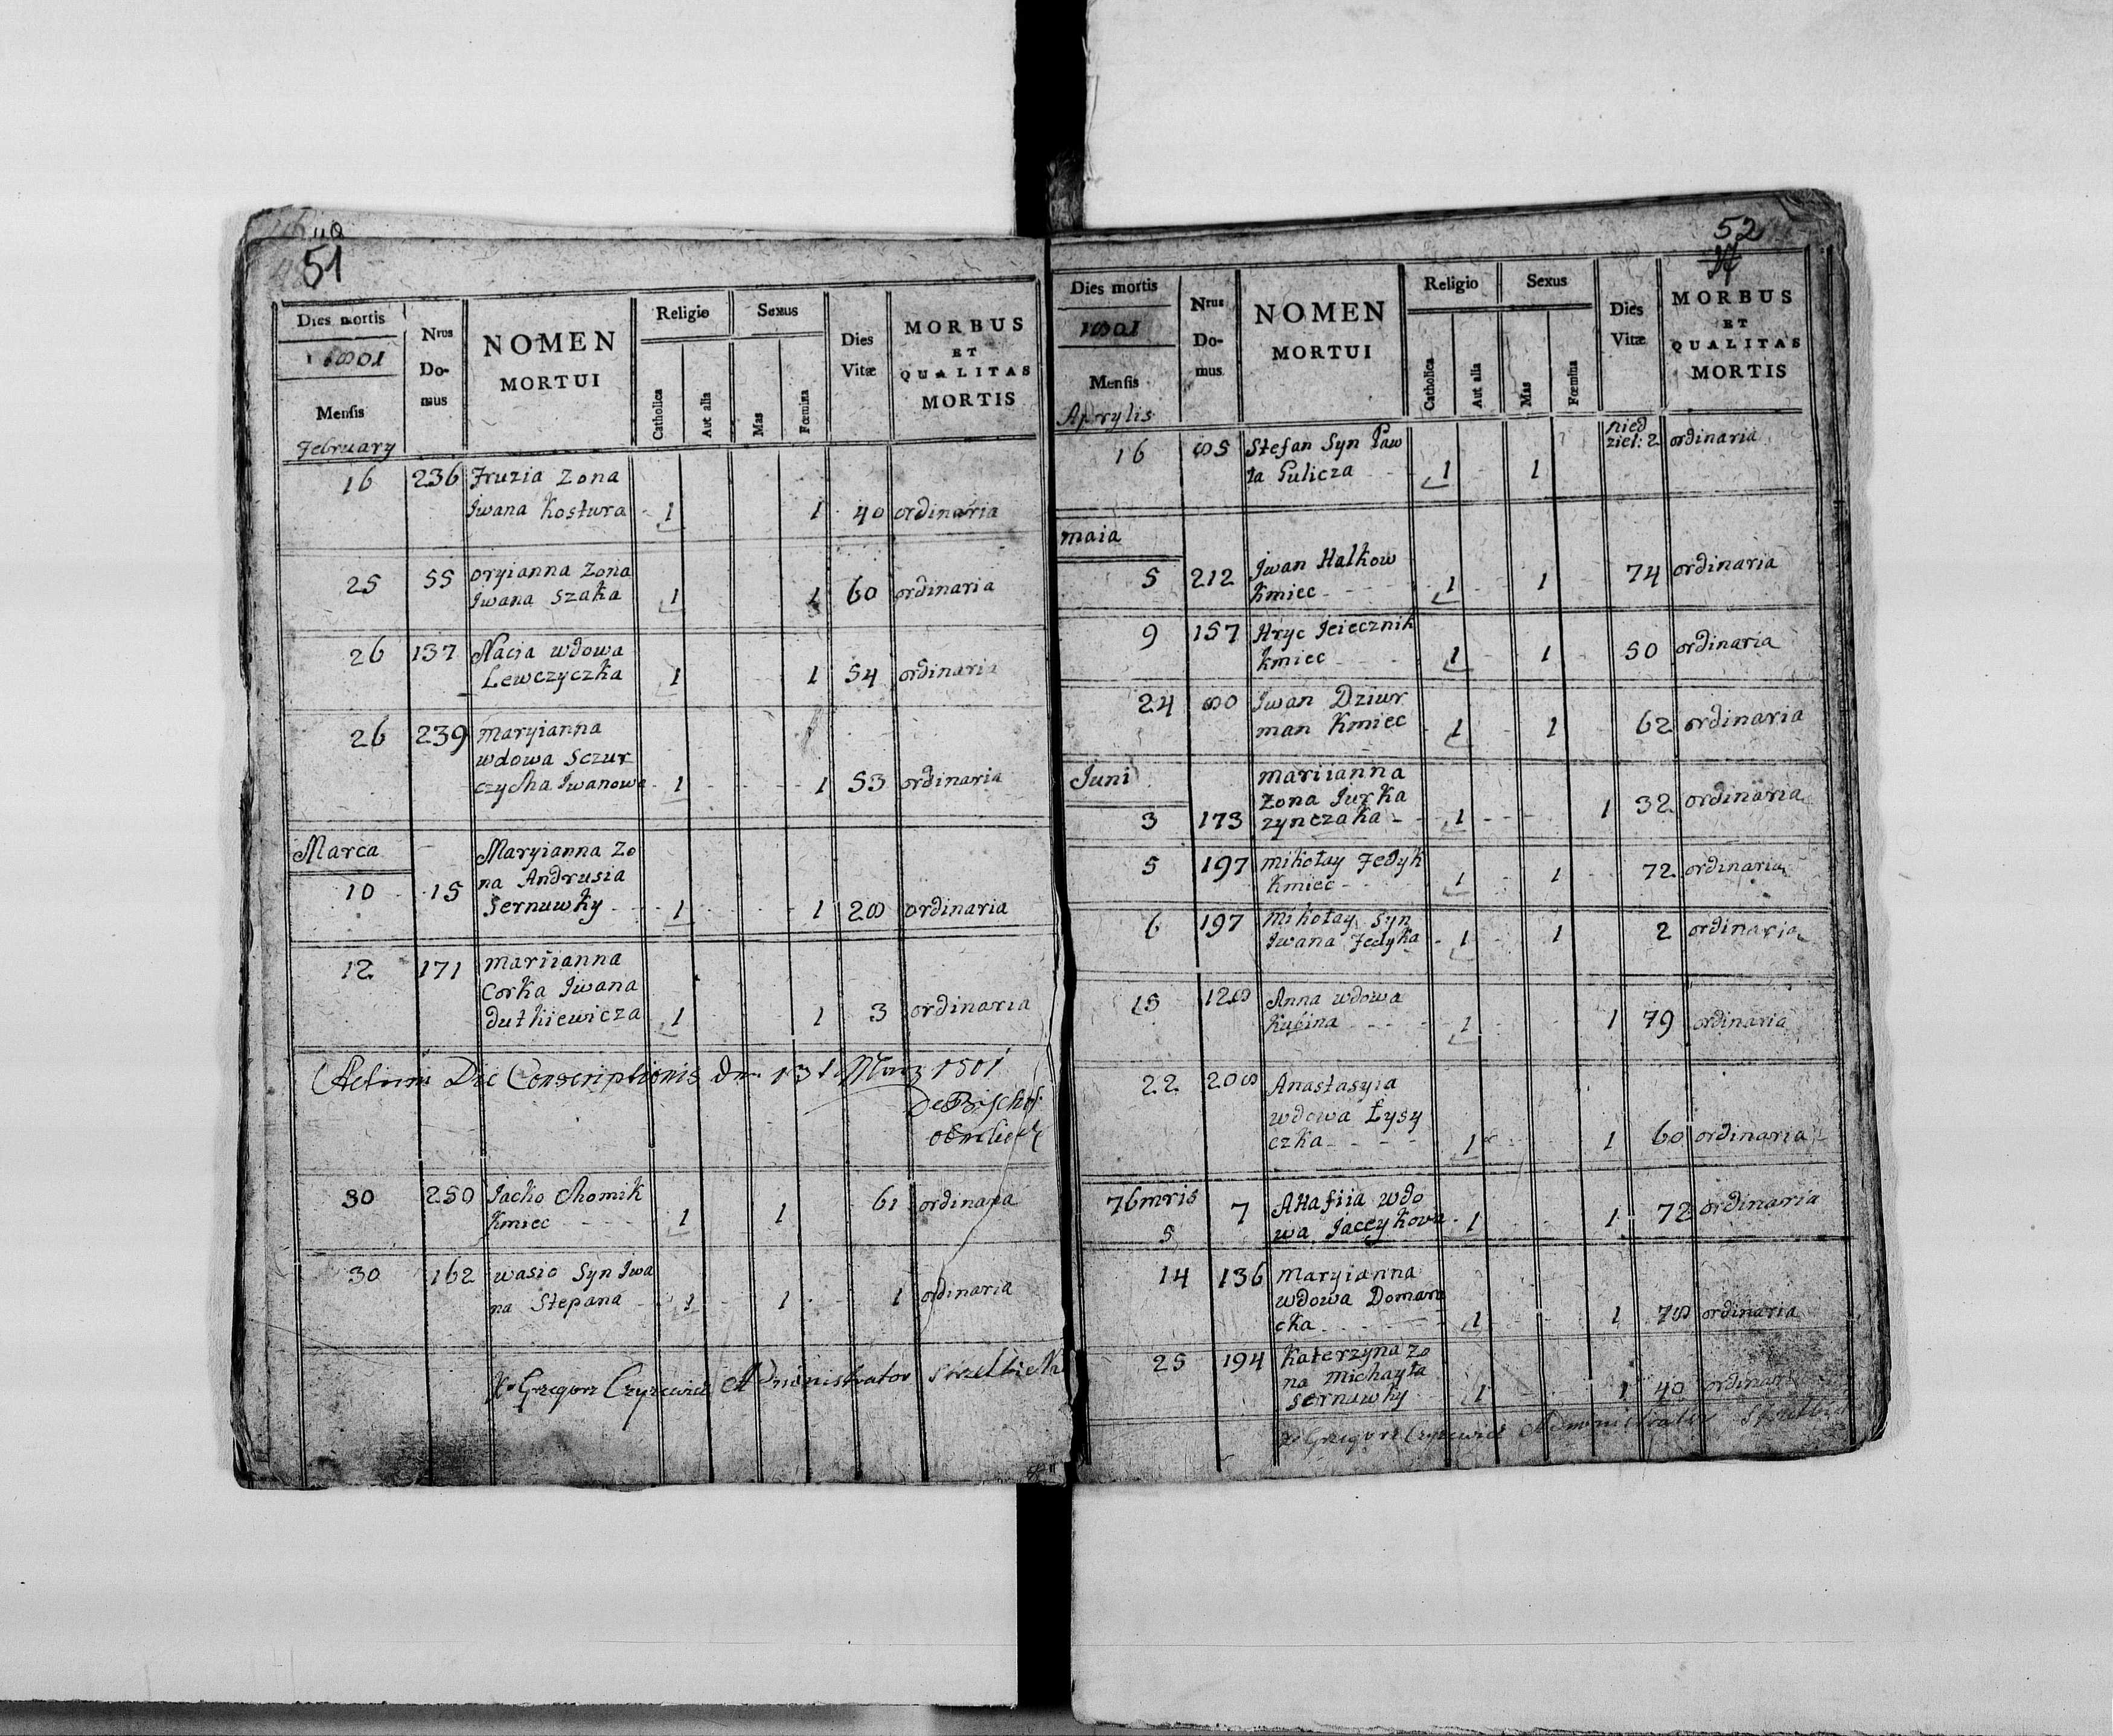 51
Dies mortis
1801
Mensis
February
Nrus Domus
NOMEN
MORTUI
Religio
Catholica
Aut alia
Sexus
Mas
Fœmina
Dies
Vitæ
MORBUS
ET
QUALITAS
MORTIS
16 236 Fruzia Zona
Iwana Kostura 1 1 40 ordinaria
25 55 oryianna Zona
Iwana Szaka 1 1 60 ordinaria
26 137 Nacia wdowa
Lewczyczka 1 1 54 ordinaria
26 239 maryianna
wdowa Sczur
czycha Iwanowa 1 1 53 ordinaria
Marca
10 15 Maryianna Zo
na Andrusia
Sernuwky 1 1 28 ordinaria
12 171 mariianna
Corka Iwana
dutkiewicza 1 1 3 ordinaria
Actum Die Conscriptionis 1801
30 250 Jacko Chomik
Kmiec 1 1 61 ordinara
30 162 wasio Syn Iwa
na Stepana 1 1 1 ordinaria
X Grzegorz Czyzewicz Administrator
52
Dies mortis
1801
Mensis
Aprylis
Nrus
Do-
mus
NOMEN
MORTUI
Religio
Catholica
Aut alia
Sexus
Mas
Fœmina
Dies
Vitæ
MORBUS
ET
QUALITAS
MORTIS
16 85 Stefan Syn Paw
ła Gulicza 1 1 nied
ziel: 2 ordinaria
maia
5 212 Iwan Halkow
Kmiec 1 1 74 ordinaria
9 157 Hryc Jeiecznik
Kmiec 1 1 50 ordinaria
24 80 Iwan Dziur
man Kmiec 1 1 62 ordinaria
Juni
3 173 mariianna
Zona Jurka
zynczaka 1 1 32 ordinaria
5 197 mikołay Fedyk
Kmiec 1 1 72 ordinaria
6 197 mikołay Syn
Iwana Fedyka 1 1 2 ordinaria
15 128 Anna wdowa
Kucina 1 1 79 ordinaria
22 208 Anastasyia
wdowa Łysy
czka 1 1 60 ordinaria
76mris
5 7 Attafiia wdo
wa Jaceykowa 1 1 72 ordinaria
14 136 maryianna
wdowa Doman
cka 1 1 78 ordinaria
25 194 Katerzyna Zo
na michayła
Sernuwky 1 1 40 ordinaria
X Grzegorz Czyzewicz Administrator